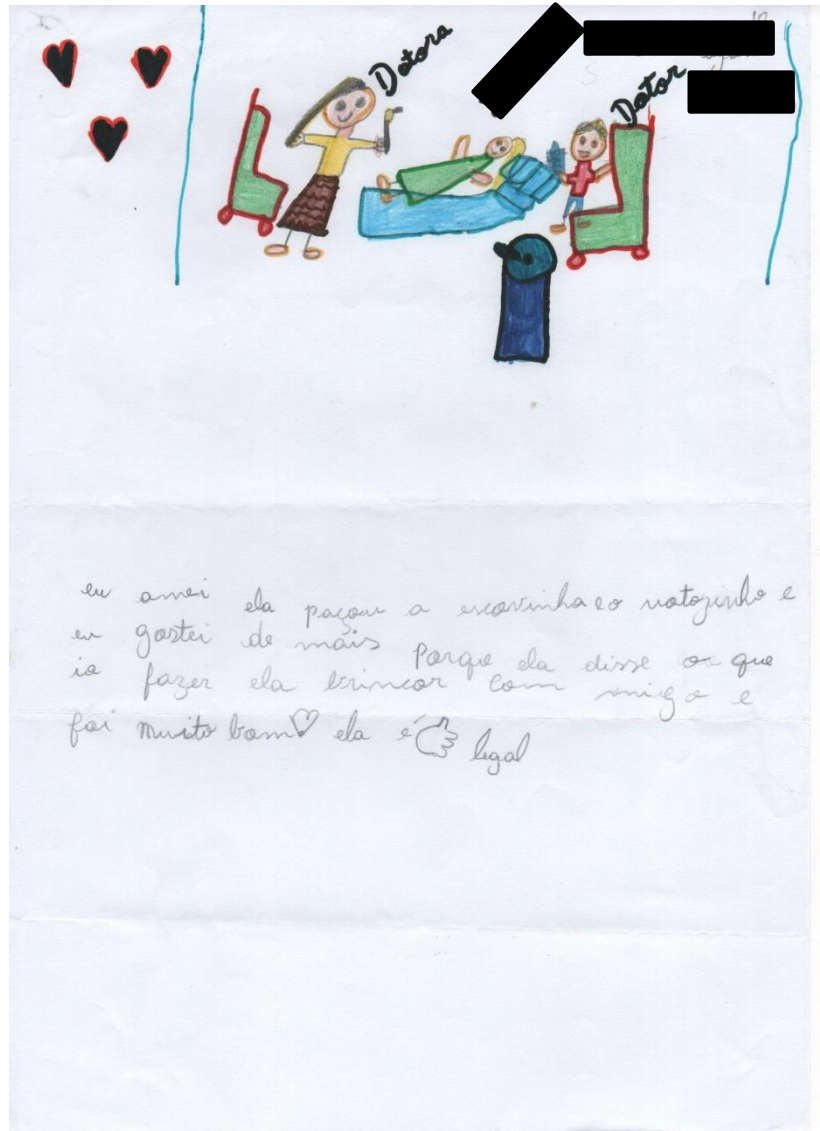 Dotora
Dotor
eu amei ela paçou a escovinha eo ratozinho e
eu gostei de mais Porque ela disse oc que
ia fazer ela brincar com migo e
foi muito bom ela é legal